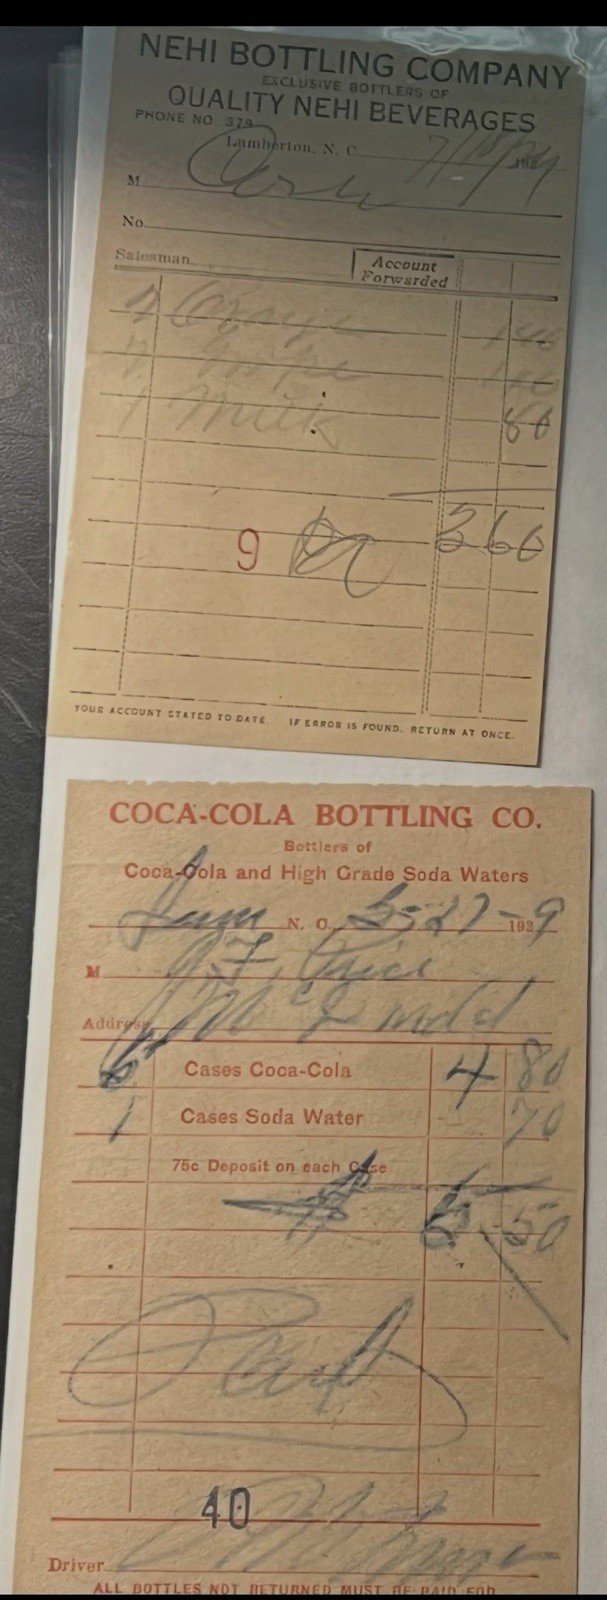 NEHI BOTTLING COMPANY
EXCLUSIVE BOTTLERS OF
QUALITY NEHI BEVERAGES
PHONE NO 379
Lumberton, N. C. 7/18/ 192
M
No.
Salesman
Account Forwarded
Orange
1 Milk 80
9 3 60
YOUR ACCOUNT STATED TO DATE. IF ERROR IS FOUND, RETURN AT ONCE.
COCA-COLA BOTTLING CO.
Bottlers of
Coca-Cola and High Grade Soda Waters
Lum N. C. 5-27- 192 9
M Price
Address
6 Cases Coca-Cola 4 80
1 Cases Soda Water 70
75c Deposit on each Case
5 50
Paid
40
Driver
ALL BOTTLES NOT RETURNED MUST BE PAID FOR